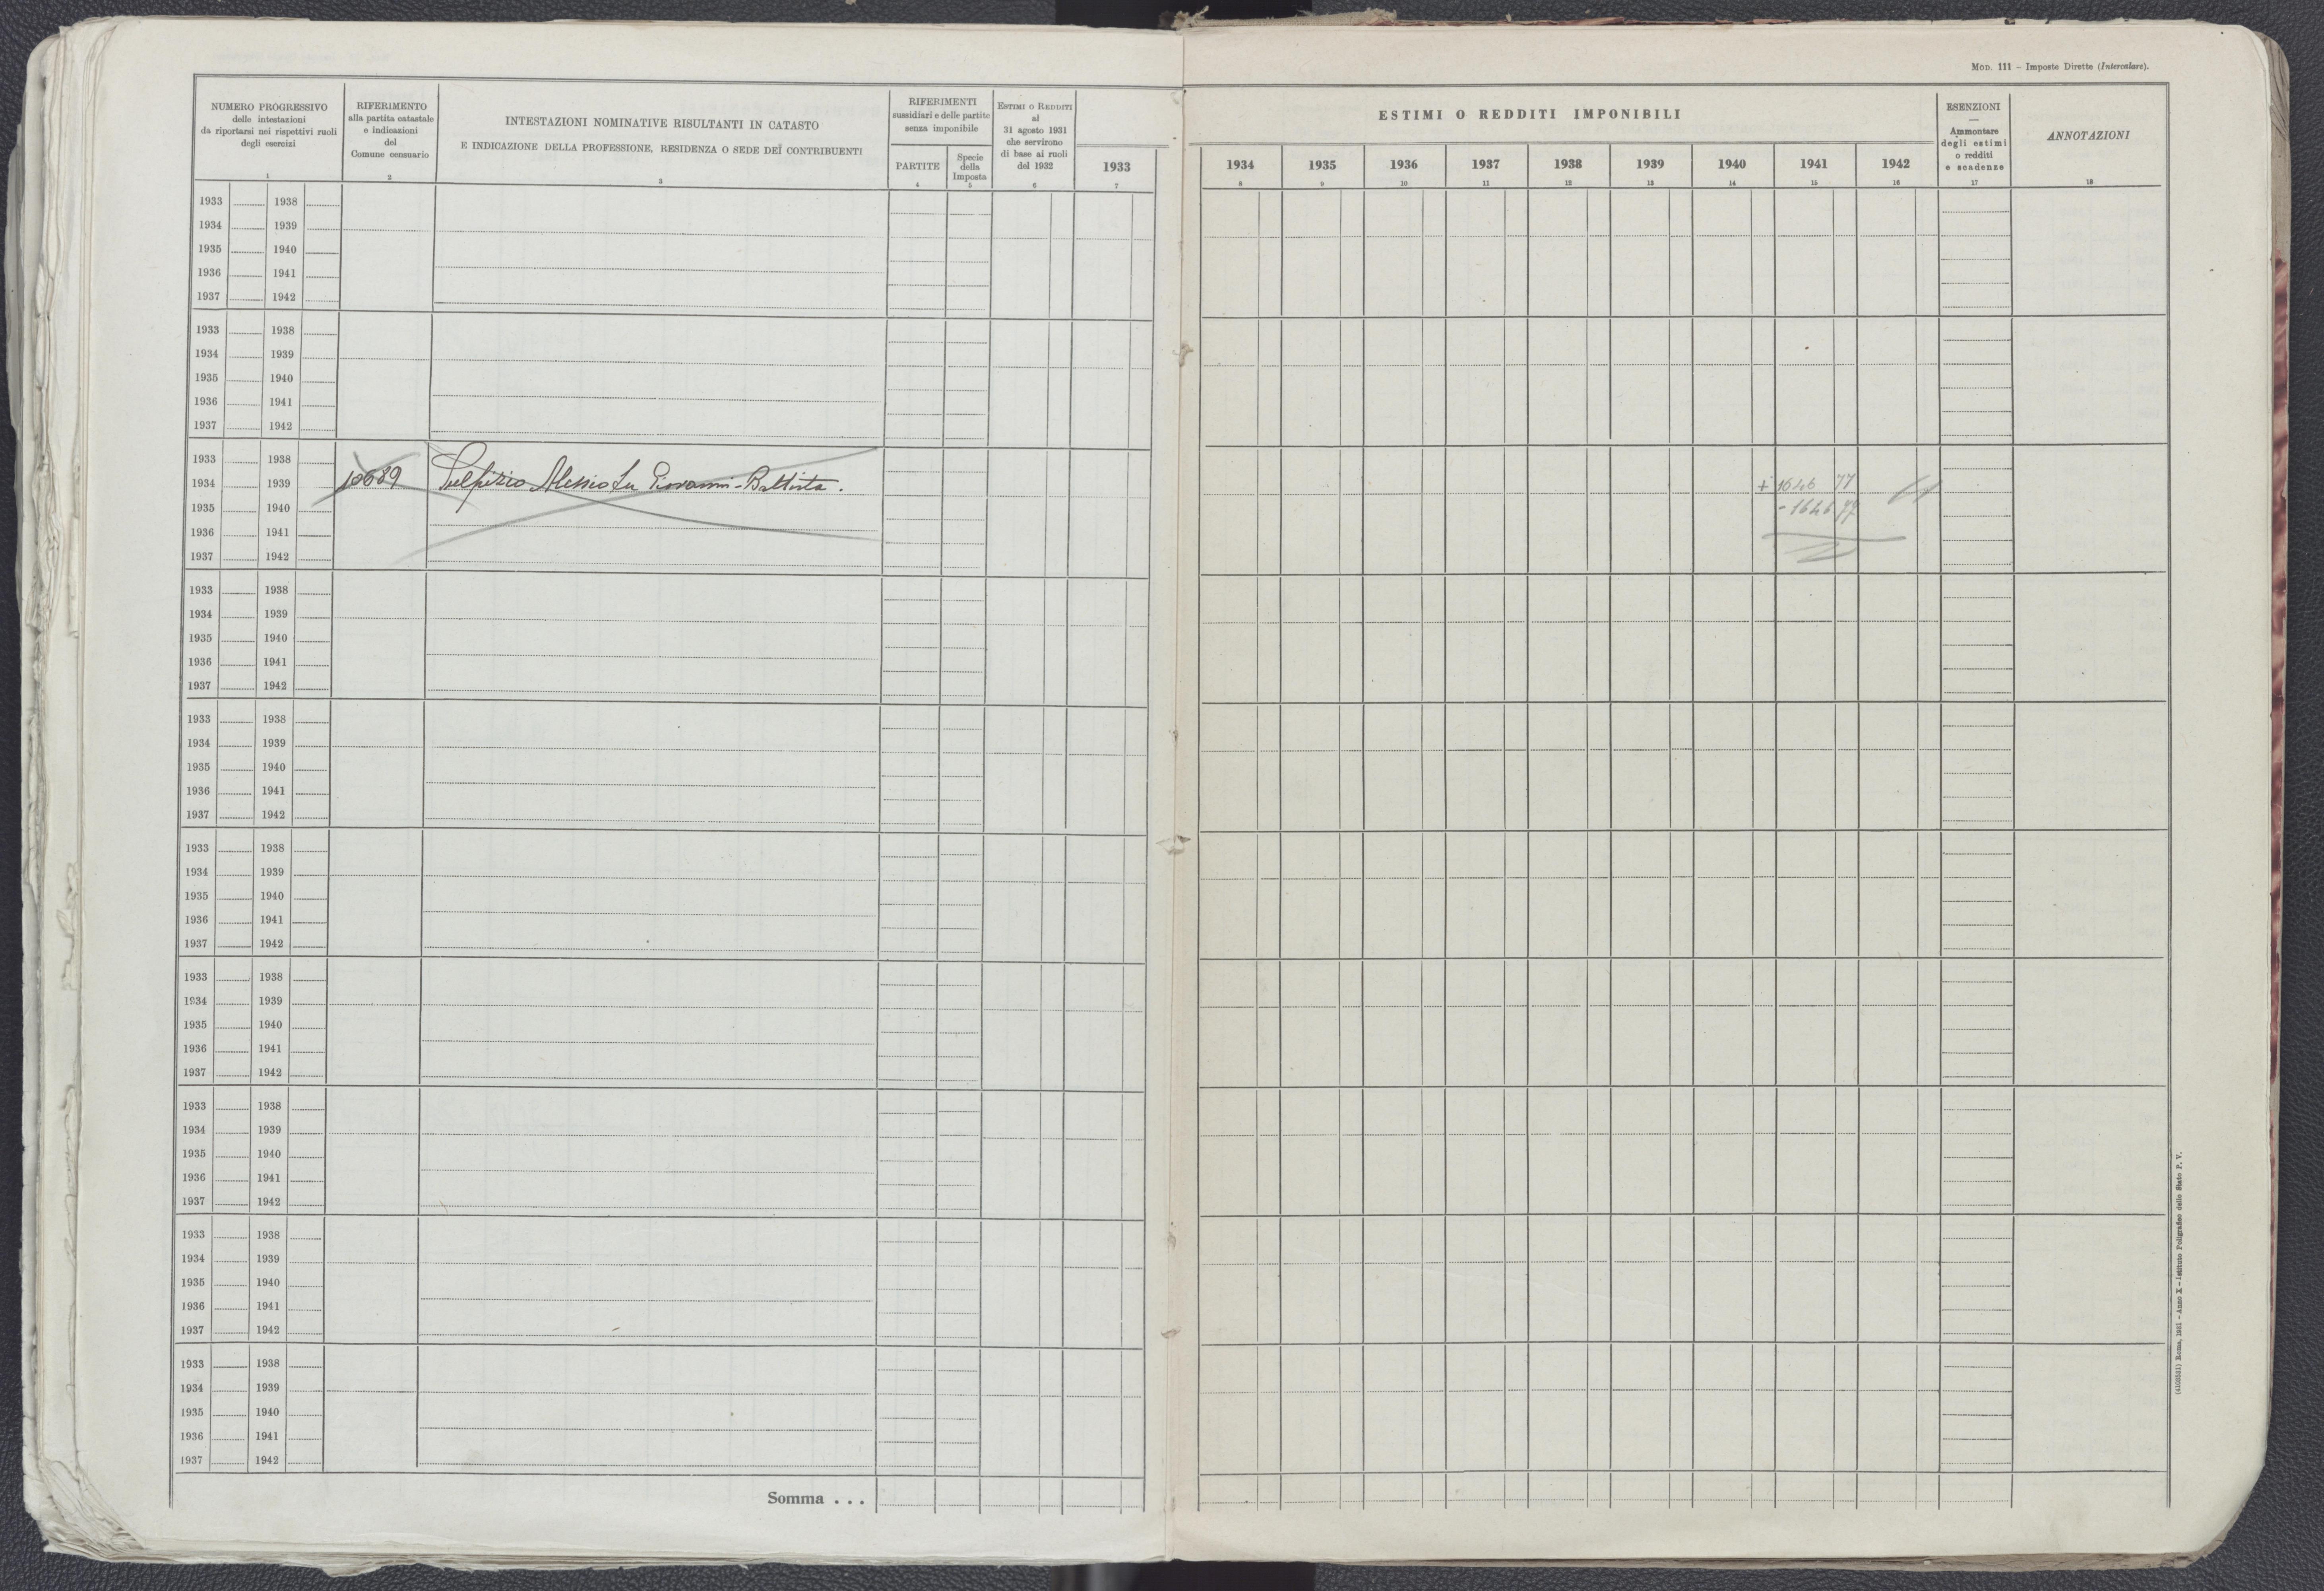 Mod. 111 – Imposte Dirette (Intercalare).
NUMERO PROGRESSIVO
delle intestazioni
da riportarsi nei rispettivi ruoli
degli esercizi
1
RIFERIMENTO
alla partita catastale
e indicazioni
del
Comune censuario
2
INTESTAZIONI NOMINATIVE RISULTANTI IN CATASTO
E INDICAZIONE DELLA PROFESSIONE, RESIDENZA O SEDE DEI CONTRIBUENTI
3
RIFERIMENTI
sussidiari e delle partite
senza imponibile
PARTITE
4
Specie
della
Imposta
5
Estimi o Redditi
al
31 agosto 1931
che servirono
di base ai ruoli
del 1932
6
1933
7
ESTIMI O REDDITI IMPONIBILI
1934 1935 1936 1937 1938 1939 1940 1941 1942
8 9 10 11 12 13 14 15 16
ESENZIONI
—
Ammontare
degli estimi
o redditi
e scadenze
17
ANNOTAZIONI
18
1933 1938
1934 1939
1935 1940
1936 1941
1937 1942
1933 1938
1934 1939
1935 1940
1936 1941
1937 1942
1933 1938
1934 1939 10689 Sulpizio Alessio fu Giovanni-Battista. + 1646 77
1935 1940 - 1646 77
1936 1941
1937 1942
1933 1938
1934 1939
1935 1940
1936 1941
1937 1942
1933 1938
1934 1939
1935 1940
1936 1941
1937 1942
1933 1938
1934 1939
1935 1940
1936 1941
1937 1942
1933 1938
1934 1939
1935 1940
1936 1941
1937 1942
1933 1938
1934 1939
1935 1940
1936 1941
1937 1942
1933 1938
1934 1939
1935 1940
1936 1941
1937 1942
1933 1938
1934 1939
1935 1940
1936 1941
1937 1942
Somma . . .
Roma, 1931 – Anno X – Istituto Poligrafico dello Stato P. V.